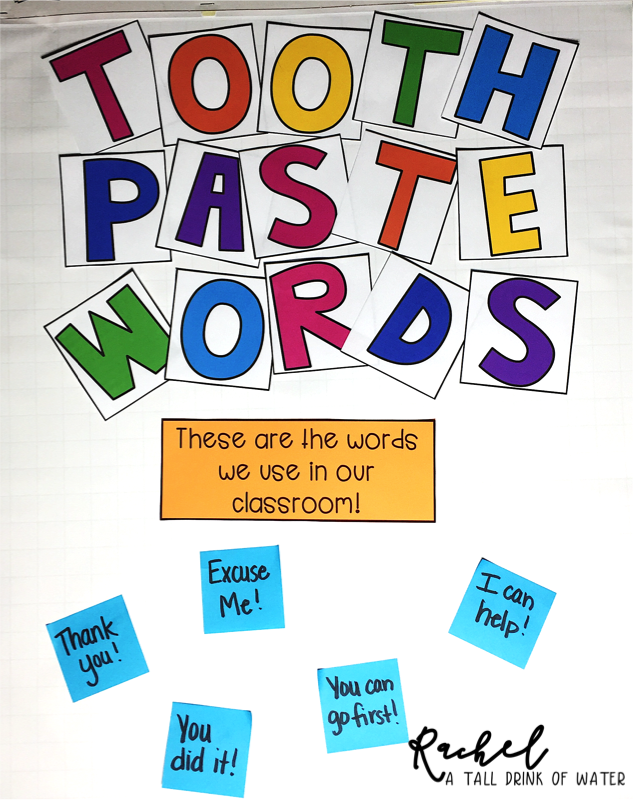 TOOTH
PASTE
WORDS
These are the words
we use in our
classroom!
Excuse
Me!
I can
help!
Thank
you!
You can
go first!
You
did it!
Rachel
A TALL DRINK OF WATER